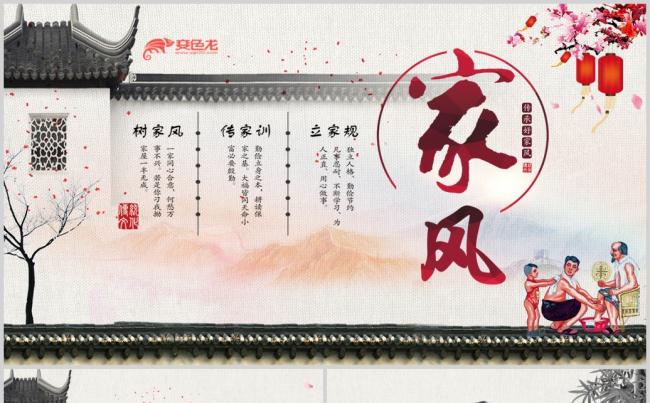 变色龙
家风
传承好家风
立家规
独立人格、勤俭节约
凡事忍耐、不断学习、为
人正直、用心做事。
传家训
勤俭立身之本、耕读保
家之基。大福皆由天命小
富必要殷勤
树家风
一家同心合意、何愁万
事不兴。若是你刁我拗
家屋一半无成。